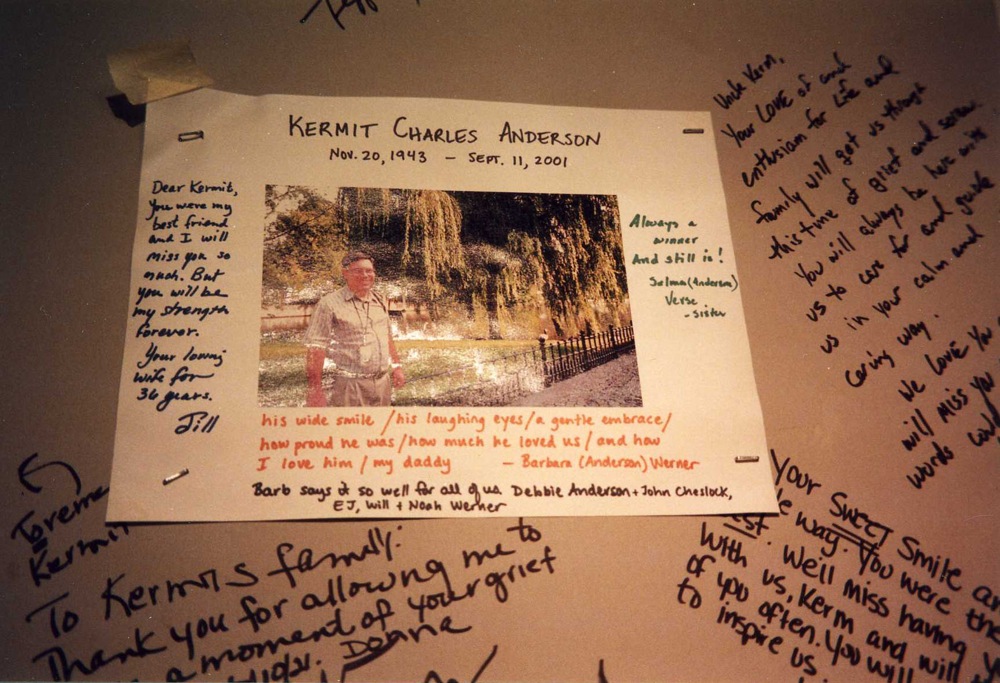 KERMIT CHARLES ANDERSON
NOV. 20, 1943 – SEPT. 11, 2001
Dear Kermit,
You were my
best friend
and I will
miss you so
much. But
you will be
my strength
forever.
Your loving
wife for
36 years.
Jill
Always a
winner
And still is!
Selma (Anderson)
Verse
-sister
his wide smile / his laughing eyes / a gentle embrace /
how proud he was / how much he loved us / and how
I love him / my daddy – Barbara (Anderson) Werner
Barb says it so well for all of us. Debbie Anderson + John Cheslock,
EJ, Will + Noah Werner
Uncle Kerm,
Your LOVE of and
enthusiam for life and
family will get us through
this time of grief and sorrow.
You will always be here with
us to care for and guide
us in your calm and
caring way.
We love you
will miss you
words
Kermit
To Kermit's family:
Thank you for allowing me to
a moment of your grief
Donna
Your SWEET Smile
way. You were the
est. We'll miss having
with us, Kerm and will
of you often. You will
to inspire us